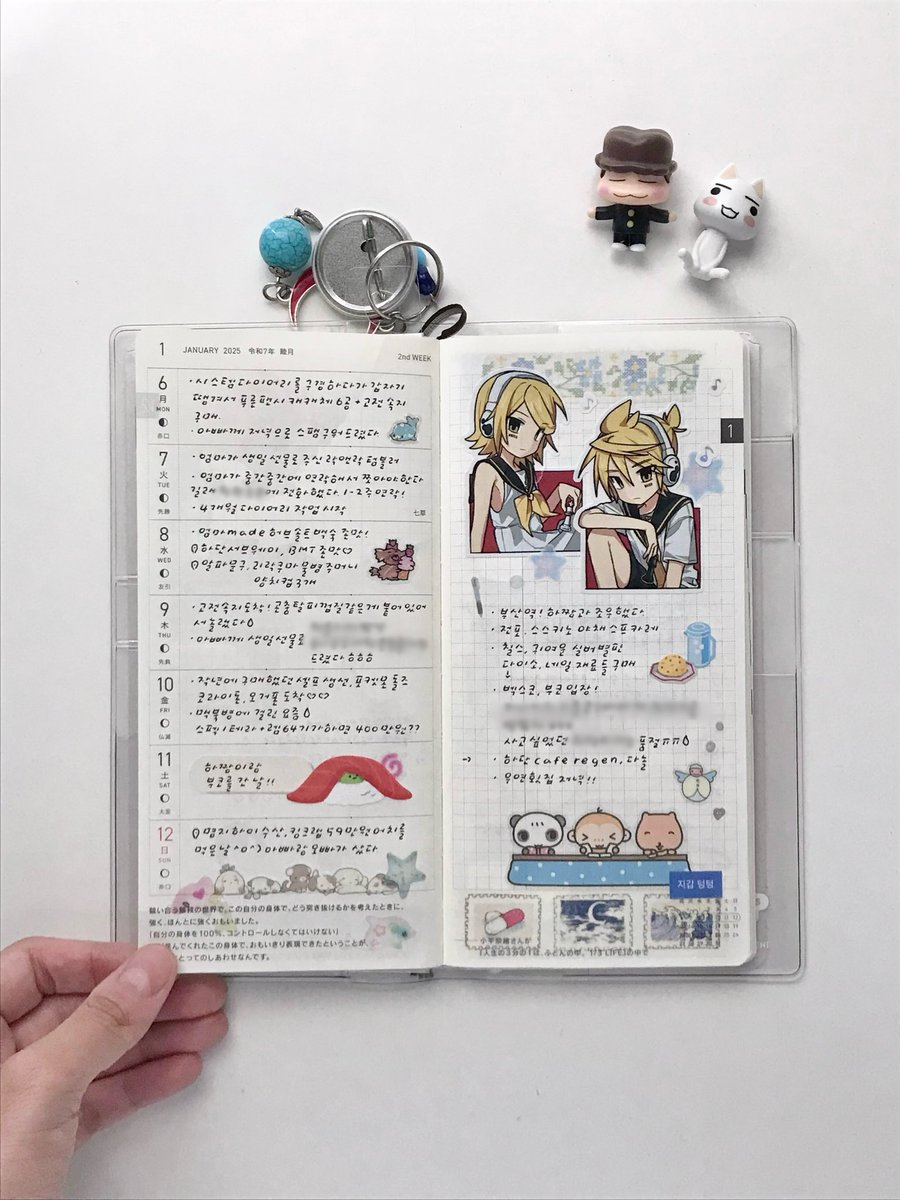 1 JANUARY 2025 令和7年 睦月
2nd WEEK
6 月 MON 赤口
・시스템 다이어리를 구경하다가 갑자기
땡겨서 푸른팬시 캐캐체 6공 + 고전 속지
구매.
・아빠께 저녁으로 스팸 구워드렸다
7 火 TUE 先勝
・엄마가 생일 선물로 주신 락앤락 텀블러
・엄마가 중간중간에 연락해서 쫓아야한다
길래 에 전화했다 1-2주 연락!
・4개월 다이어리 작업 시작
七草
8 水 WED 友引
・엄마made 허브솔트 백숙 존맛!
하단 서브웨이, BMT 존맛♡
알파문구, 리락쿠마 물병주머니
양치컵 구매
9 木 THU 先負
・고전속지도착! 곤충탈피껍질같은게 붙어있어
서 놀랬다
・아빠께 생일선물로
드렸다 ㅎㅎㅎ
10 金 FRI 仏滅
・작년에 구매했던 셀프 생선, 포켓몬 몰드
코라이돈, 오거폰 도착♡♡
・맥북병에 걸린 요즘
스펙 1테라+렘64기가하면 400만원??
11 土 SAT 大安
하짱이랑
부코를 간 날!!
12 日 SUN 赤口
명지하이수산, 킹크랩 59만원어치를
먹은날 ^o^) 아빠랑 오빠가 샀다
競い合う競技の世界で、この自分の身体で、どう突き抜けるかを考えたときに、
強く、ほんとに強くおもいました。
「自分の身体を100%、コントロールしなくてはいけない」
んでくれたこの身体で、おもいきり表現できたということが、
とってのしあわせなんです。
1
・부산역! 하짱과 조우했다
・전포. 스스키노 야채 스프카레
・칠스, 귀여운 실버별핀
다이소, 네일 재료들 구매
↓
・벡스코, 부코 입장!
사고싶었던 품절ㅠㅠ
→ ・하단 cafe regen, 다놀
・우연횟집 저녁!!
지갑 텅텅
小平奈緒さんが
『人生の3分の1は、ふとんの中。 1/3 LIFE』の中で